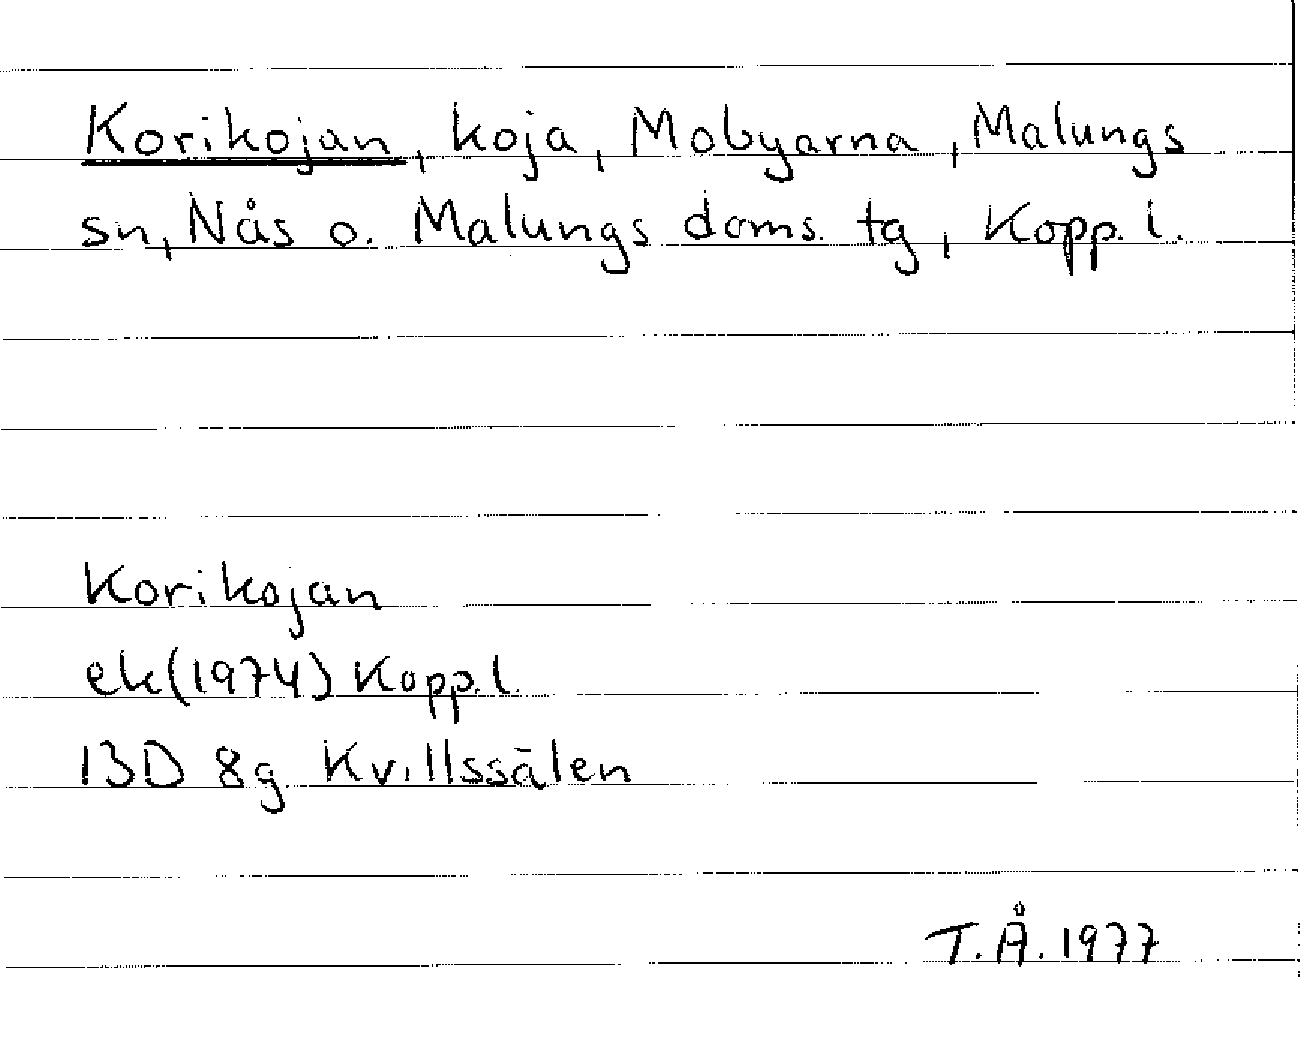 Korikojan, koja, Mobyarna, Malungs
sn, Nås o. Malungs doms. tg, Kopp. l.
Korikojan
ek(1974) Kopp. l.
13D 8g Kvillssälen
T.Å. 1977